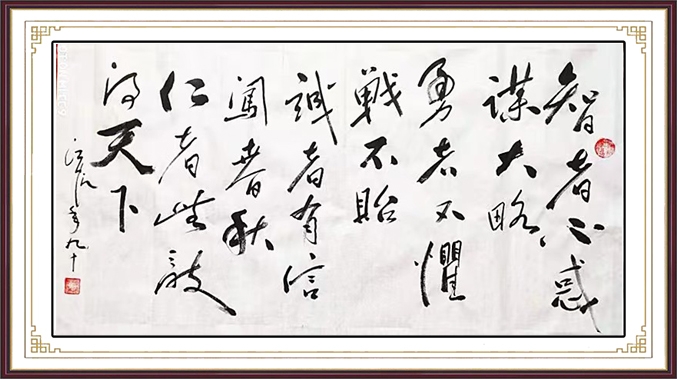 智者不惑
谋大略
勇者不懼
戰不殆
誠者有信
闖春秋
仁者無敌
得天下
年九十